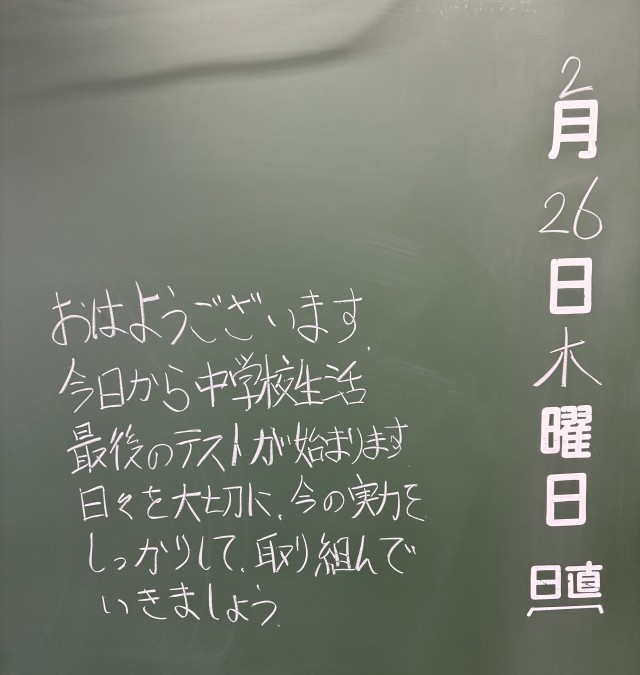 2月26日木曜日
日直
おはようございます.
今日から中学校生活
最後のテストが始まります.
日々を大切に、今の実力を
しっかりして、取り組んで
いきましょう.